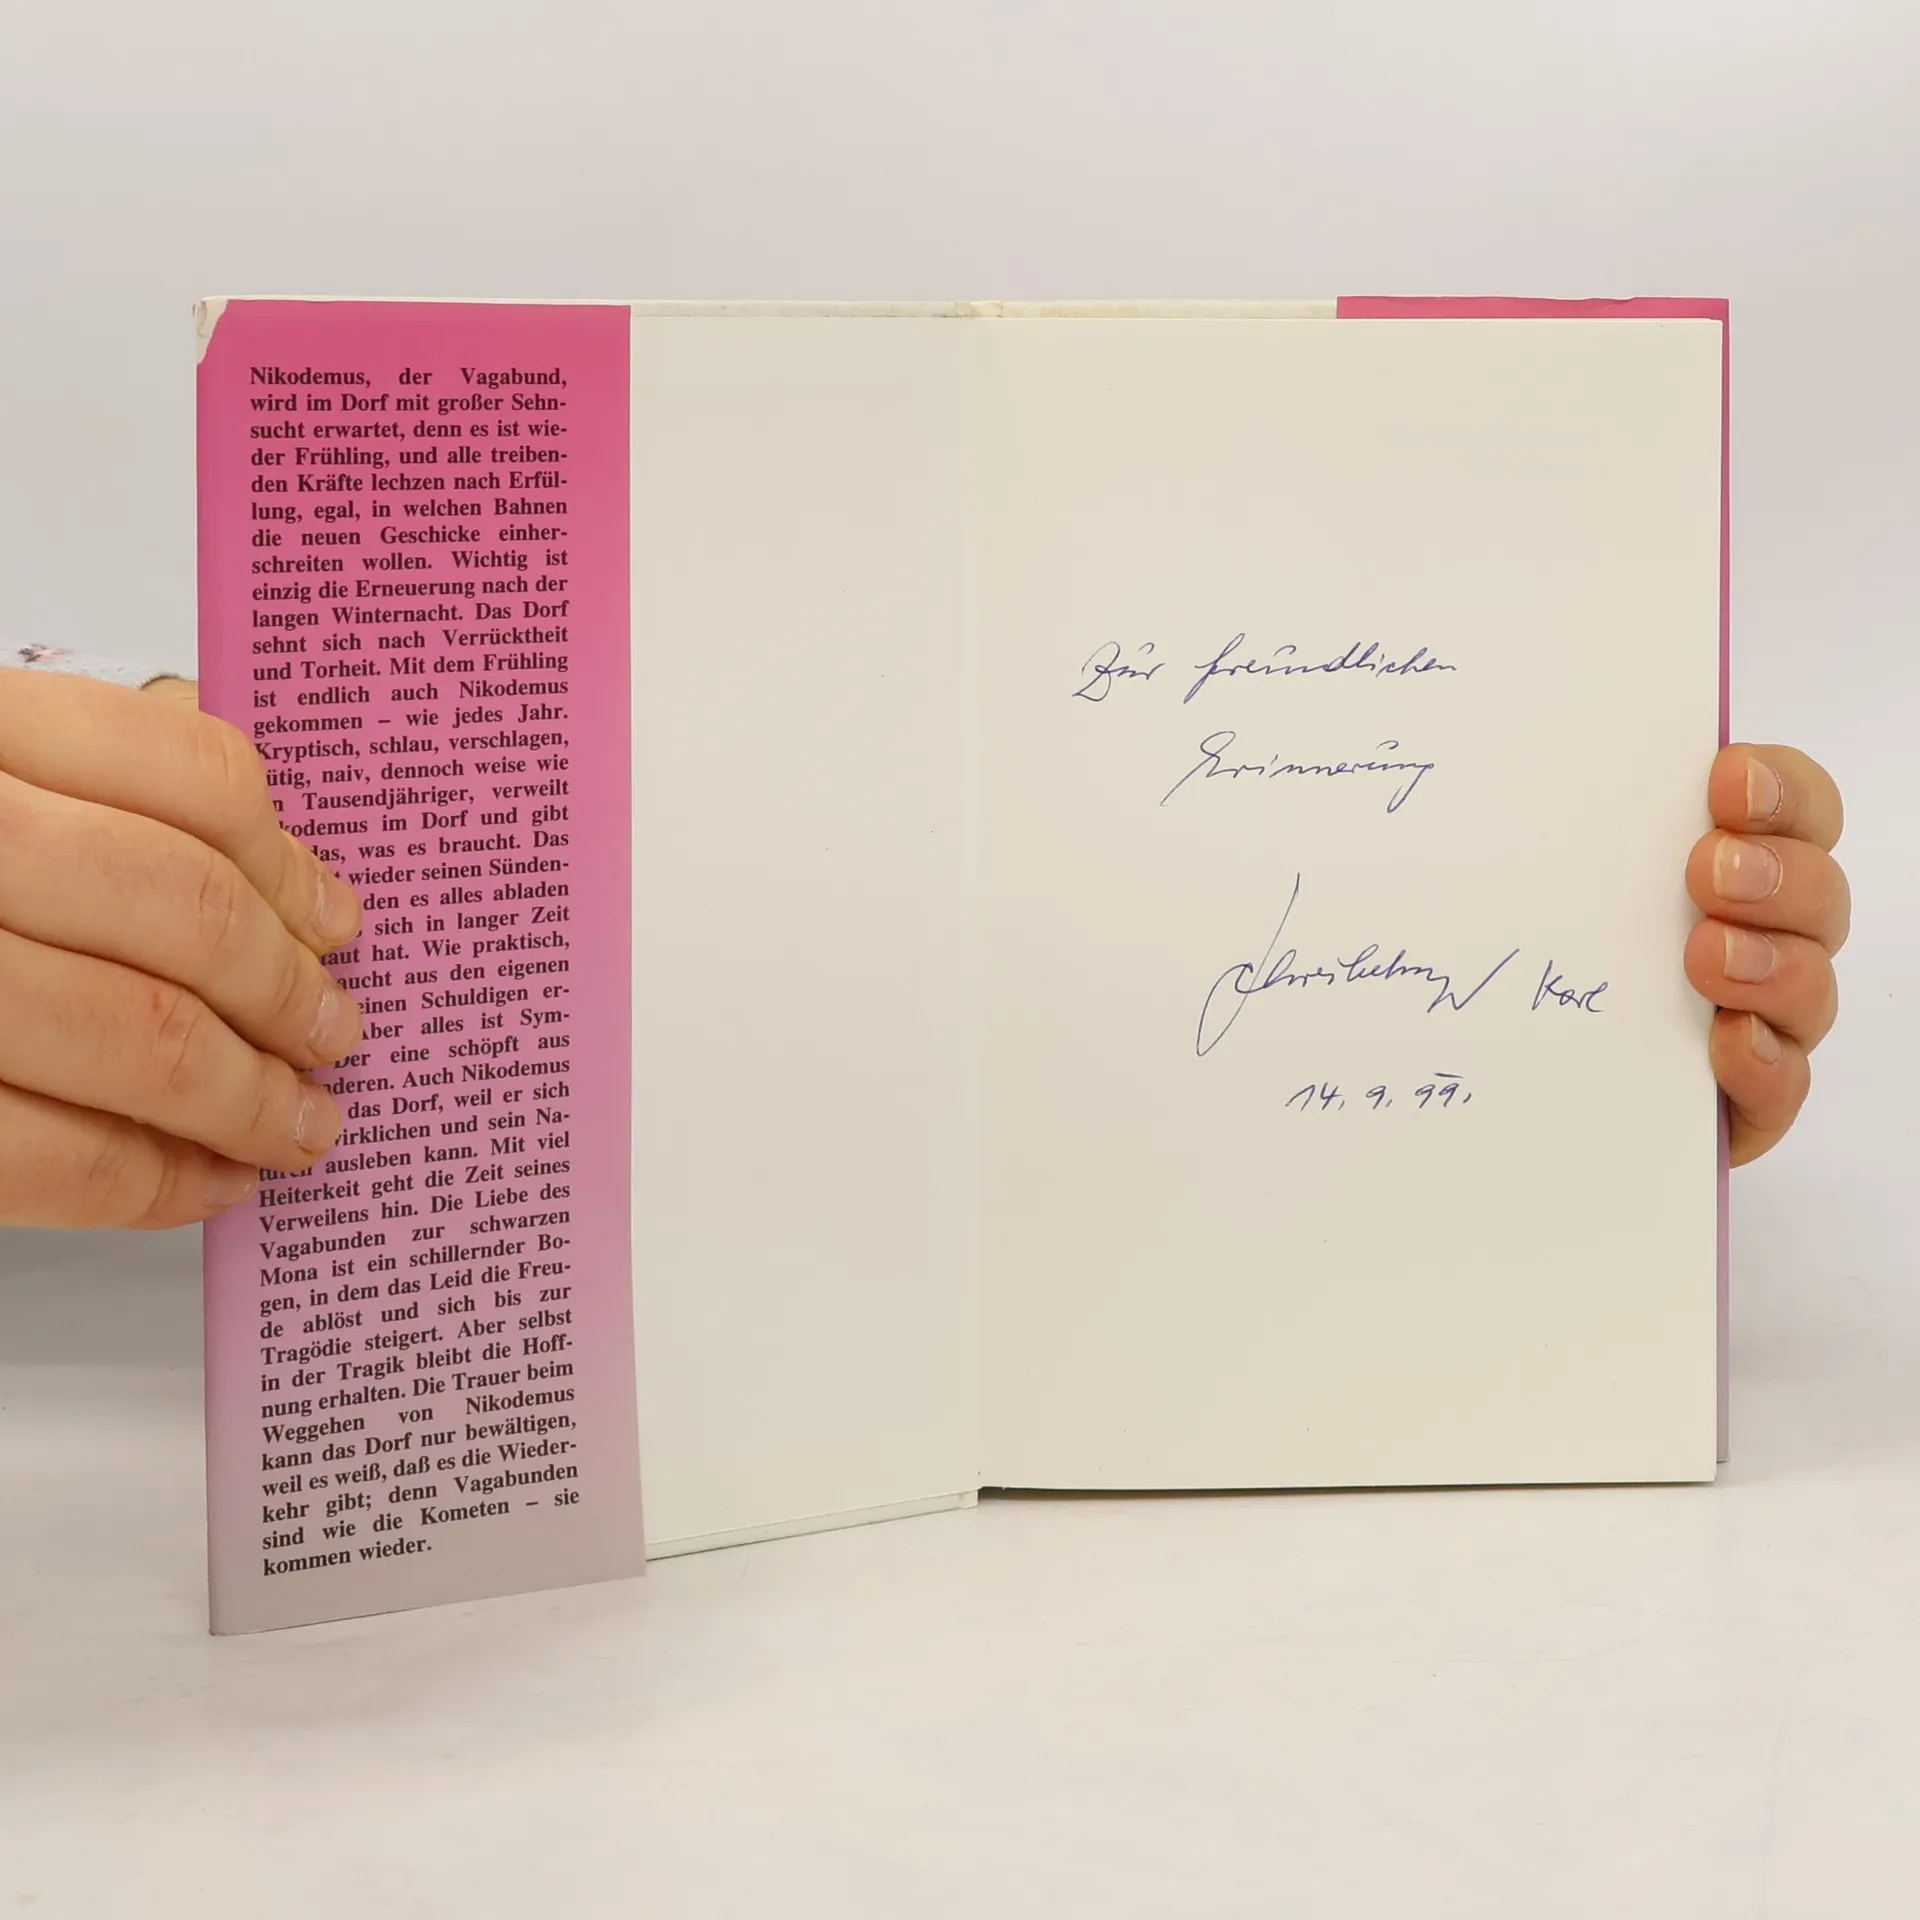 Nikodemus, der Vagabund,
wird im Dorf mit großer Sehn-
sucht erwartet, denn es ist wie-
der Frühling, und alle treiben-
den Kräfte lechzen nach Erfül-
lung, egal, in welchen Bahnen
die neuen Geschicke einher-
schreiten wollen. Wichtig ist
einzig die Erneuerung nach der
langen Winternacht. Das Dorf
sehnt sich nach Verrücktheit
und Torheit. Mit dem Frühling
ist endlich auch Nikodemus
gekommen – wie jedes Jahr.
Kryptisch, schlau, verschlagen,
ütig, naiv, dennoch weise wie
n Tausendjähriger, verweilt
kodemus im Dorf und gibt
das, was es braucht. Das
wieder seinen Sünden-
den es alles abladen
sich in langer Zeit
taut hat. Wie praktisch,
aucht aus den eigenen
einen Schuldigen er-
Aber alles ist Sym-
Der eine schöpft aus
nderen. Auch Nikodemus
das Dorf, weil er sich
virklichen und sein Na-
turen ausleben kann. Mit viel
Heiterkeit geht die Zeit seines
Verweilens hin. Die Liebe des
Vagabunden zur schwarzen
Mona ist ein schillernder Bo-
gen, in dem das Leid die Freu-
de ablöst und sich bis zur
Tragödie steigert. Aber selbst
in der Tragik bleibt die Hoff-
nung erhalten. Die Trauer beim
Weggehen von Nikodemus
kann das Dorf nur bewältigen,
weil es weiß, daß es die Wieder-
kehr gibt; denn Vagabunden
sind wie die Kometen – sie
kommen wieder.
Zur freundlichen
Erinnerung
Karl
14. 9. 99.